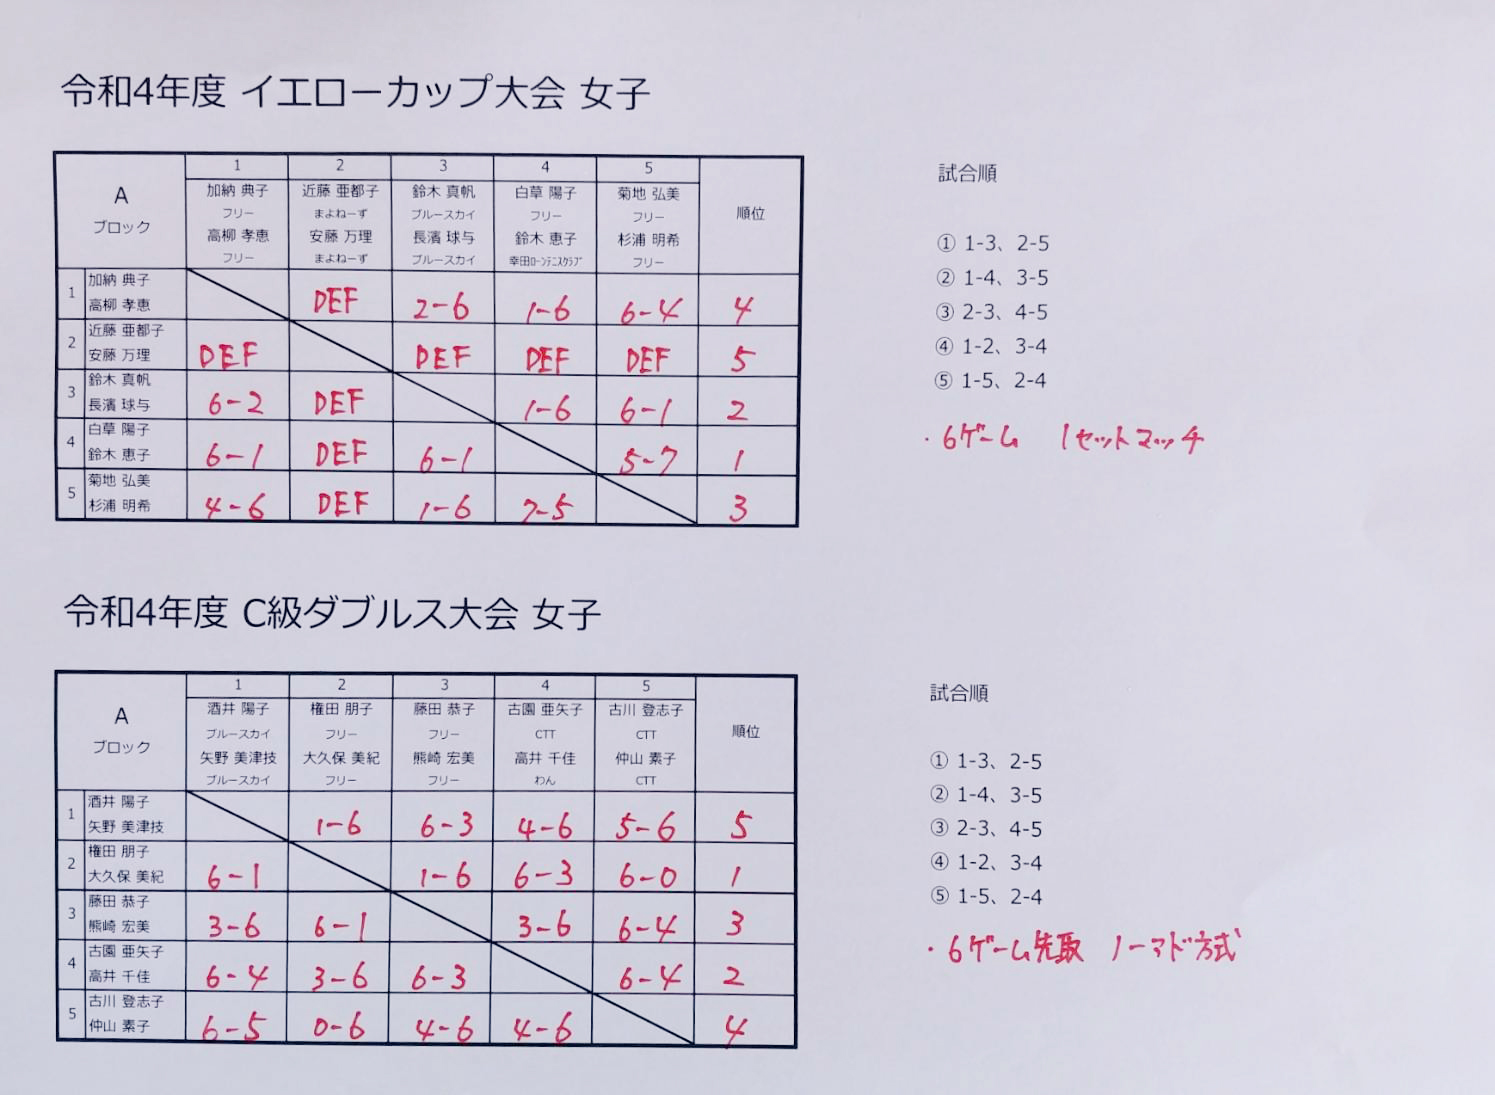 令和4年度 イエローカップ大会 女子
A
ブロック
1 2 3 4 5
加納 典子 近藤 亜都子 鈴木 真帆 白草 陽子 菊地 弘美
フリー まよねーず ブルースカイ フリー フリー
高柳 孝恵 安藤 万理 長濱 球与 鈴木 恵子 杉浦 明希
フリー まよねーず ブルースカイ 幸田ローンテニスクラブ フリー
順位
1 加納 典子
高柳 孝恵 DEF 2-6 1-6 6-4 4
2 近藤 亜都子
安藤 万理 DEF DEF DEF DEF 5
3 鈴木 真帆
長濱 球与 6-2 DEF 1-6 6-1 2
4 白草 陽子
鈴木 恵子 6-1 DEF 6-1 5-7 1
5 菊地 弘美
杉浦 明希 4-6 DEF 1-6 7-5 3
試合順
① 1-3、2-5
② 1-4、3-5
③ 2-3、4-5
④ 1-2、3-4
⑤ 1-5、2-4
・6ゲーム 1セットマッチ
令和4年度 C級ダブルス大会 女子
A
ブロック
1 2 3 4 5
酒井 陽子 権田 朋子 藤田 恭子 古園 亜矢子 古川 登志子
ブルースカイ フリー フリー CTT CTT
矢野 美津技 大久保 美紀 熊崎 宏美 高井 千佳 仲山 素子
ブルースカイ フリー フリー わん CTT
順位
1 酒井 陽子
矢野 美津技 1-6 6-3 4-6 5-6 5
2 権田 朋子
大久保 美紀 6-1 1-6 6-3 6-0 1
3 藤田 恭子
熊崎 宏美 3-6 6-1 3-6 6-4 3
4 古園 亜矢子
高井 千佳 6-4 3-6 6-3 6-4 2
5 古川 登志子
仲山 素子 6-5 0-6 4-6 4-6 4
試合順
① 1-3、2-5
② 1-4、3-5
③ 2-3、4-5
④ 1-2、3-4
⑤ 1-5、2-4
・6ゲーム先取 ノーアド方式